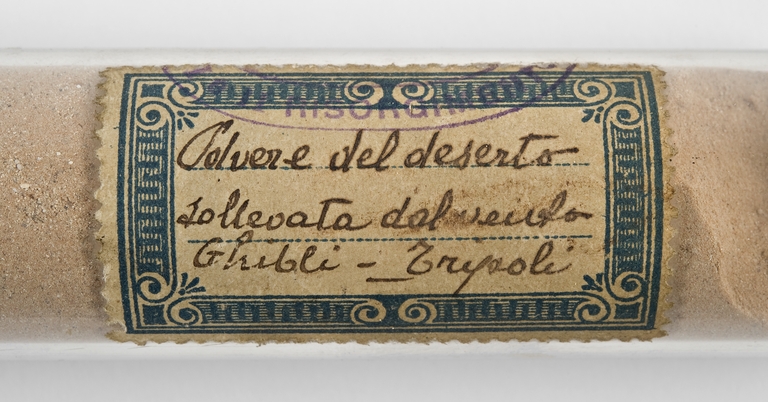 RISORGIMENTO
Polvere del deserto
sollevata dal vento
Ghibli - Tripoli